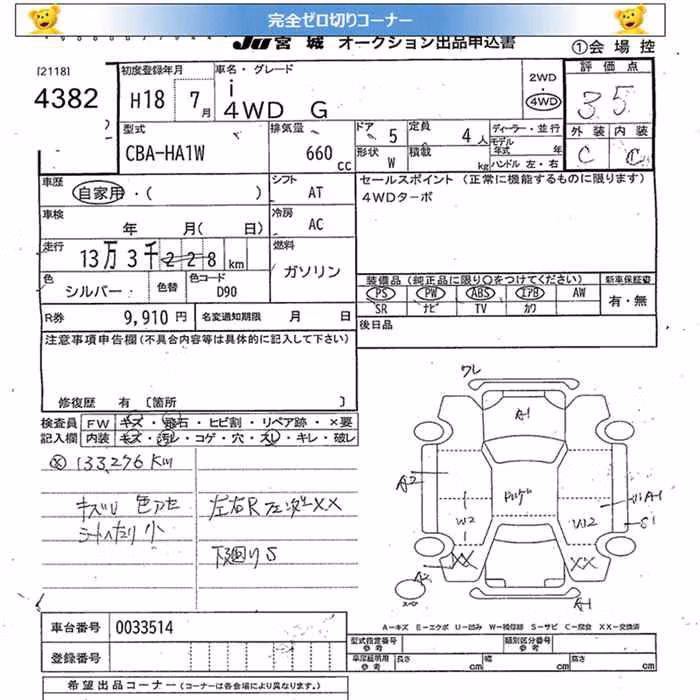 完全ゼロ切りコーナー
JU宮城 オークション出品申込書
①会場控
[2118]
4382
初度登録年月
H18 7月
車名・グレード
i
4WD G
2WD
4WD
評価点
3.5
外装 内装
C C
型式
CBA-HA1W
排気量
660 cc
ドア 5
定員 4人
形状 W
積載 kg
ディーラー・並行
モデル年式 年
ハンドル 左・右
車歴
自家用・( )
シフト
AT
車検
年 月( 日)
冷房
AC
走行
13万3千228km
燃料
ガソリン
色
シルバー
色替
色コード
D90
R券 9,910円
名変通知期限 月 日
セールスポイント (正常に機能するものに限ります)
4WDターボ
装備品 (純正品に限り○をつけてください)
PS PW ABS エアB AW
SR ナビ TV カワ
新車保証書
有・無
後日品
注意事項申告欄(不具合内容等は具体的に記入して下さい)
修復歴 有 [箇所 ]
検査員記入欄
FW キズ・飛石・ヒビ割・リペア跡・×要
内装 キズ・汚レ・コゲ・穴・スレ・キレ・破レ
133,276Km
キズU 色アセ
シートへたり小
下廻りS
ワレ
A-1
A2
W2
W2
A-1
S1
XX
XX
A2
A-1
スペア
A-キズ E-エクボ U-凹み W-補修跡 S-サビ C-腐食 XX-交換済
車台番号 0033514
登録番号
型式指定番号 参考
類別区分番号 参考
車庫証明用 参考
長さ cm 幅 cm 高さ cm
希望出品コーナー (コーナーは各会場により異なります。)